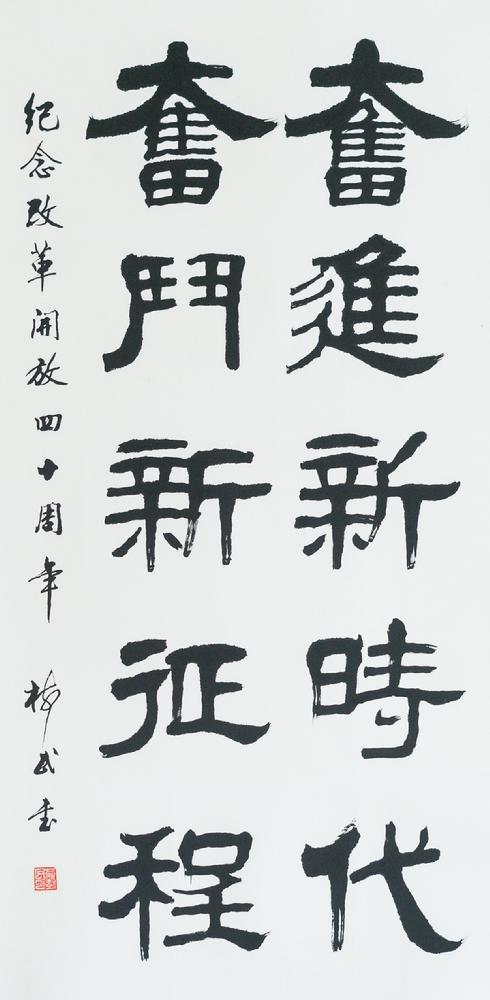 奮進新時代
奮鬥新征程
紀念改革開放四十周年 梅武書